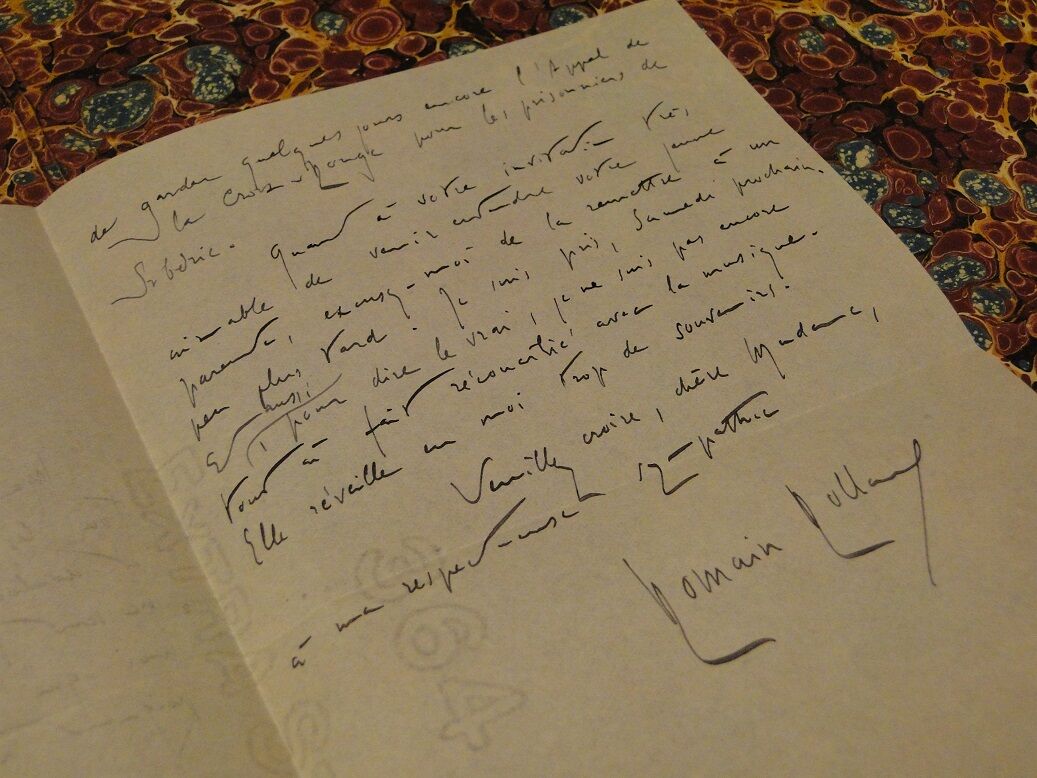 de garder quelques jours encore l'Appel de
la Croix-Rouge pour les prisonniers de
Sibérie.
Quant à votre invitation très
aimable de venir entendre votre jeune
parente, excusez-moi de la remettre à un
peu plus tard. Je suis pris, Samedi prochain.
Et aussi, pour dire le vrai, je ne suis pas encore
tout à fait réconcilié avec la musique.
Elle réveille en moi trop de souvenirs.
Veuillez croire, chère Madame,
à ma respectueuse sympathie
Romain Rolland